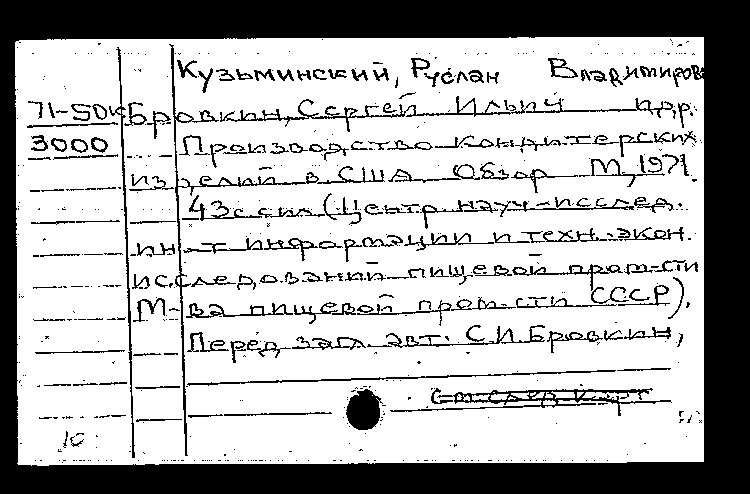 Кузьминский, Руслан Владимирови
71-50к Бровкин, Сергей Ильич и др.
3000 Производство кондитерских
изделий в США. Обзор М, 1971.
43с с ил (Центр. науч-исслед.
ин-т информации и техн.-экон.
исследований пищевой пром-сти
М-ва пищевой пром-сти СССР).
Перед загл. авт: С.И. Бровкин,
См след карт
10